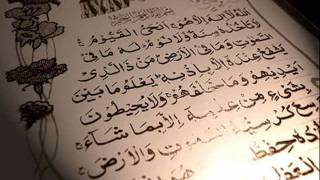 اَللّٰهُ لَا اِلٰهَ اِلَّا هُوَ اَلْحَيُّ الْقَيُّومُ
لَا تَأْخُذُهُ سِنَةٌ وَلَا نَوْمٌ لَهُ مَا فِي
السَّمٰوٰتِ وَمَا فِي الْاَرْضِ مَنْ ذَا الَّذِي
يَشْفَعُ عِنْدَهُ اِلَّا بِاِذْنِهِ يَعْلَمُ مَا بَيْنَ
اَيْدِيهِمْ وَمَا خَلْفَهُمْ وَلَا يُحِيطُونَ
بِشَيْءٍ مِنْ عِلْمِهِ اِلَّا بِمَا شَاءَ
سِعَ كُرْسِيُّهُ السَّمٰوٰتِ وَالْاَرْضَ
حِفْظُ